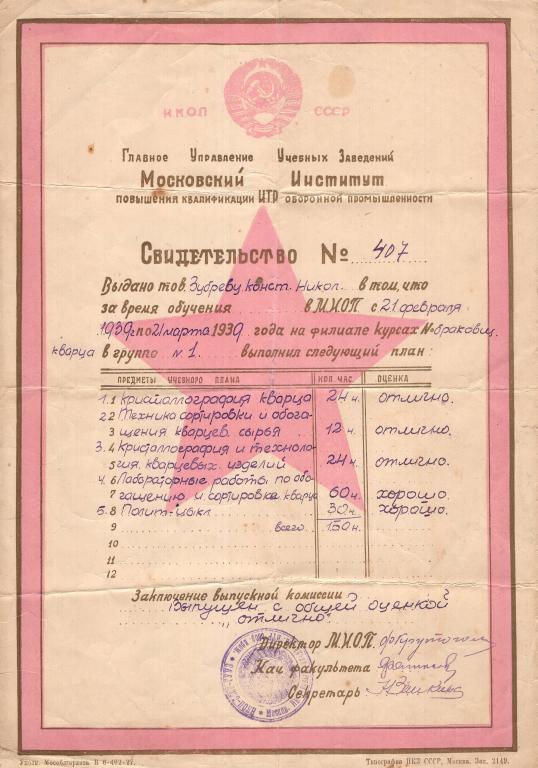 НКОП СССР
Главное Управление Учебных Заведений
Московский Институт
повышения квалификации ИТР оборонной промышленности
Свидетельство № 407
Выдано тов. Зубреву Конст. Никол. в том, что
за время обучения в М.И.О.П. с 21 февраля
1939г. по 21 марта 1939 года на филиале курсах N-браковщ.
кварца в группе N 1. выполнил следующий план:
предметы учебного плана кол. час. оценка
1. 1 Кристаллография кварца 24 ч. отлично.
2 2 Техника сортировки и обога-
3 щения кварцев. сырья. 12 ч. отлично.
3. 4 Кристаллография и техноло-
5 гия кварцевых изделий 24 ч. отлично.
4. 6 Лабораторные работы по обо-
7 гащению и сортировке кварца 60 ч. хорошо.
5. 8 Полит-цикл 30 ч. хорошо.
9 всего. 150 ч.
10
11
12
Заключение выпускной комиссии
Выпущен с общей оценкой
„отлично"
Директор М.И.О.П.
Нач факультета
Секретарь
Типография НКП СССР, Москва. Зак. 2149.